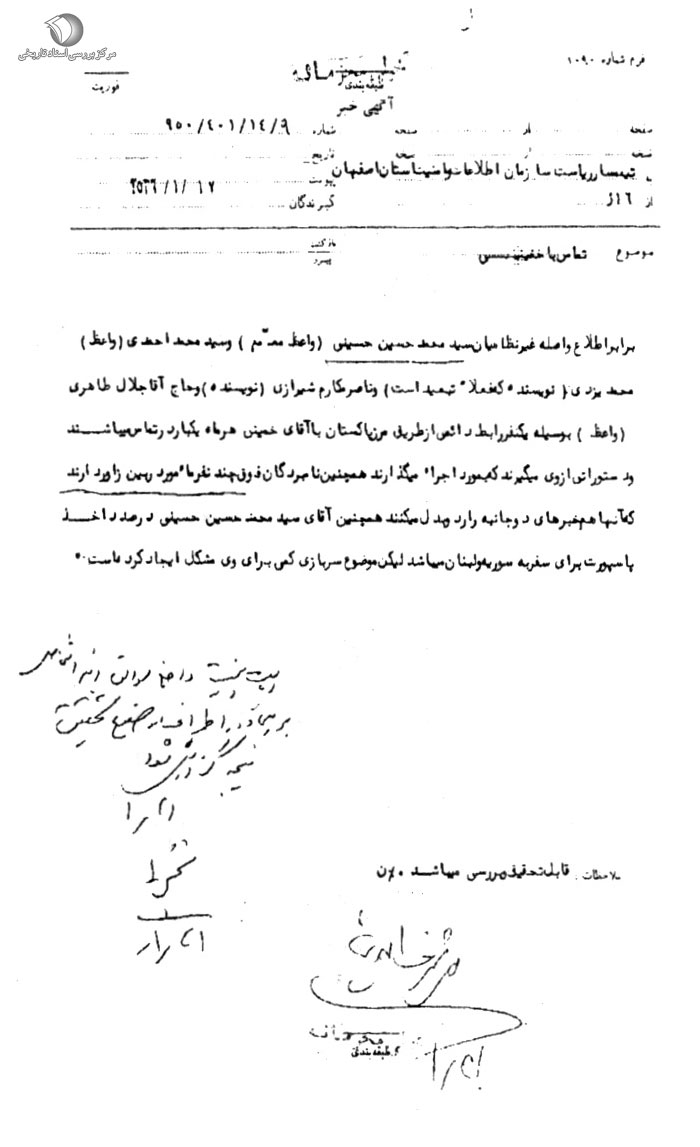 مرکز بررسی اسناد تاریخی
فرم شماره ۱۰۹۰
طبقه‌بندی
فوریت
آگهی خبر
صفحه از صفحه شماره ۹۵۰/۴۰۱/۱۴/۹
نسخه از نسخه تاریخ
تیمسار ریاست سازمان اطلاعات و امنیت استان اصفهان پیوست ۲۵۳۶/۱/۱۷
از ۱۶ از گیرندگان
موضوع تماس با خمینی بازگشت
پیرو
برابر اطلاع واصله غیرنظامیان سید محمد حسین حسینی (واعظ معمم) وسید محمد احمدی (واعظ)
محمد یزدی (نویسنده که فعلا" تبعید است) وناصر مکارم شیرازی (نویسنده) وحاج آقا جلال طاهری
(واعظ) بوسیله یکنفر رابط دائمی از طریق مرز پاکستان با آقای خمینی هر ماه یکبار در تماس میباشند
ود ستوراتی از وی میگیرند که بمورد اجراء میگذارند همچنین نامبردگان فوق چند نفر مامور د ربین زاو دارند
که آنها هم خبرهای دوجانبه را رد وبدل میکنند همچنین آقای سید محمد حسین حسینی د رصدد اخذ
پاسپورت برای سفر به سوریه ولبنان میباشد لیکن موضوع سربازی کمی برای وی مشکل ایجاد کرده است۰
نتیجه گزارش شود
ملاحظات : قابل تحقیق وبررسی میباشد
محرمانه
طبقه‌بندی